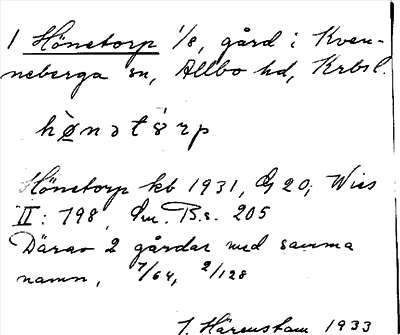 1 Hönetorp 1/8, gård i Kven-
neberga sn, Allbo hd, Krbsl.
hønətɵrp
Hönetorp kb 1931, G 20; Wies
II: 798, Em. B.s. 205
Därav 2 gårdar med samma
namn, 7/64, 2/128
J. Härenstam 1933